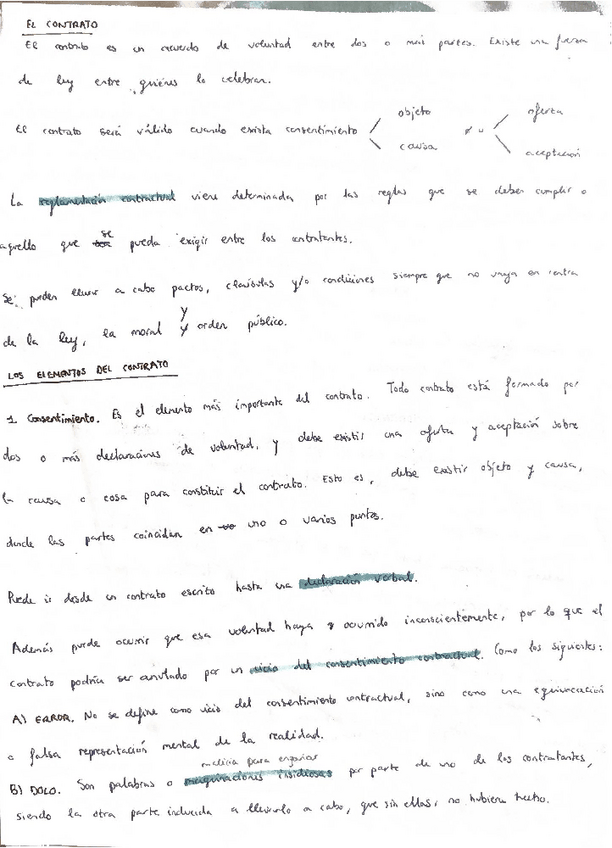 EL CONTRATO
El contrato es un acuerdo de voluntad entre dos o más partes. Existe una fuerza
de ley entre quiénes lo celebran.
objeto oferta
El contrato será válido cuando exista consentimiento
causa aceptación
La reglamentación contractual viene determinada por las reglas que se deben cumplir o
aquello que se pueda exigir entre los contratantes.
Se pueden llevar a cabo pactos, claúsulas y/o condiciones siempre que no vaya en contra
de la ley, la moral y orden público.
LOS ELEMENTOS DEL CONTRATO
1. Consentimiento. Es el elemento más importante del contrato. Todo contrato está formado por
dos o más declaraciones de voluntad, y debe existir una oferta y aceptación sobre
la causa o cosa para constituir el contrato. Esto es, debe existir objeto y causa,
donde las partes coincidan en uno o varios puntos.
Puede ir desde un contrato escrito hasta una declaración verbal.
Además puede ocurrir que esa voluntad haya ocurrido inconscientemente, por lo que el
contrato podría ser anulado por un vicio del consentimiento contractual. Como los siguientes:
A) ERROR. No se define como vicio del consentimiento contractual, sino como una equivocación
o falsa representación mental de la realidad.
malicia para engañar
B) DOLO. Son palabras o maquinaciones insidiosas por parte de uno de los contratantes,
siendo la otra parte inducida a llevarlo a cabo, que sin ellas, no hubiera hecho.